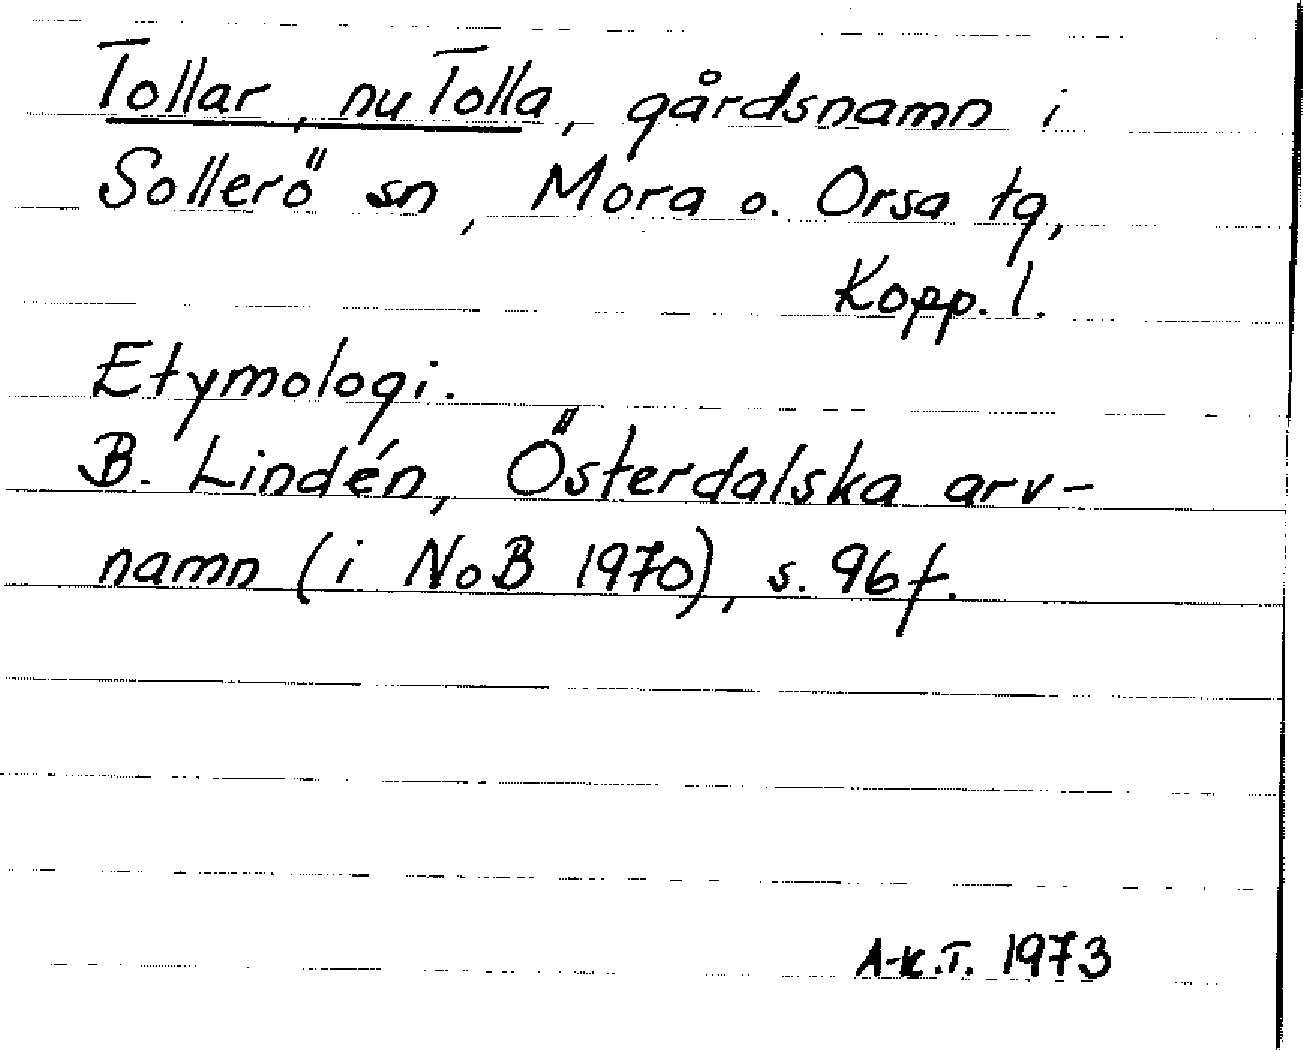 Tollar, nu Tolla, gårdsnamn i
Sollerö sn, Mora o. Orsa tg,
Kopp. l.
Etymologi.
B. Lindén, Österdalska arv-
namn (i NoB 1970), s. 96f.
A-K.T. 1973